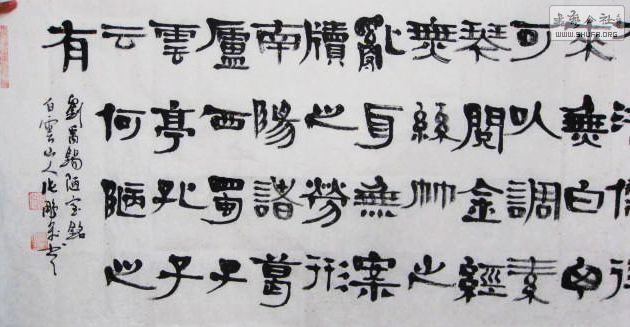 來無白
可以調素
琴閱金經
無絲竹之
亂耳無案
牘之勞形
南陽諸葛
廬西蜀子
雲亭孔子
云何陋之
有
劉禹錫陋室銘
白雲山人
WWW.SHUFA.ORG